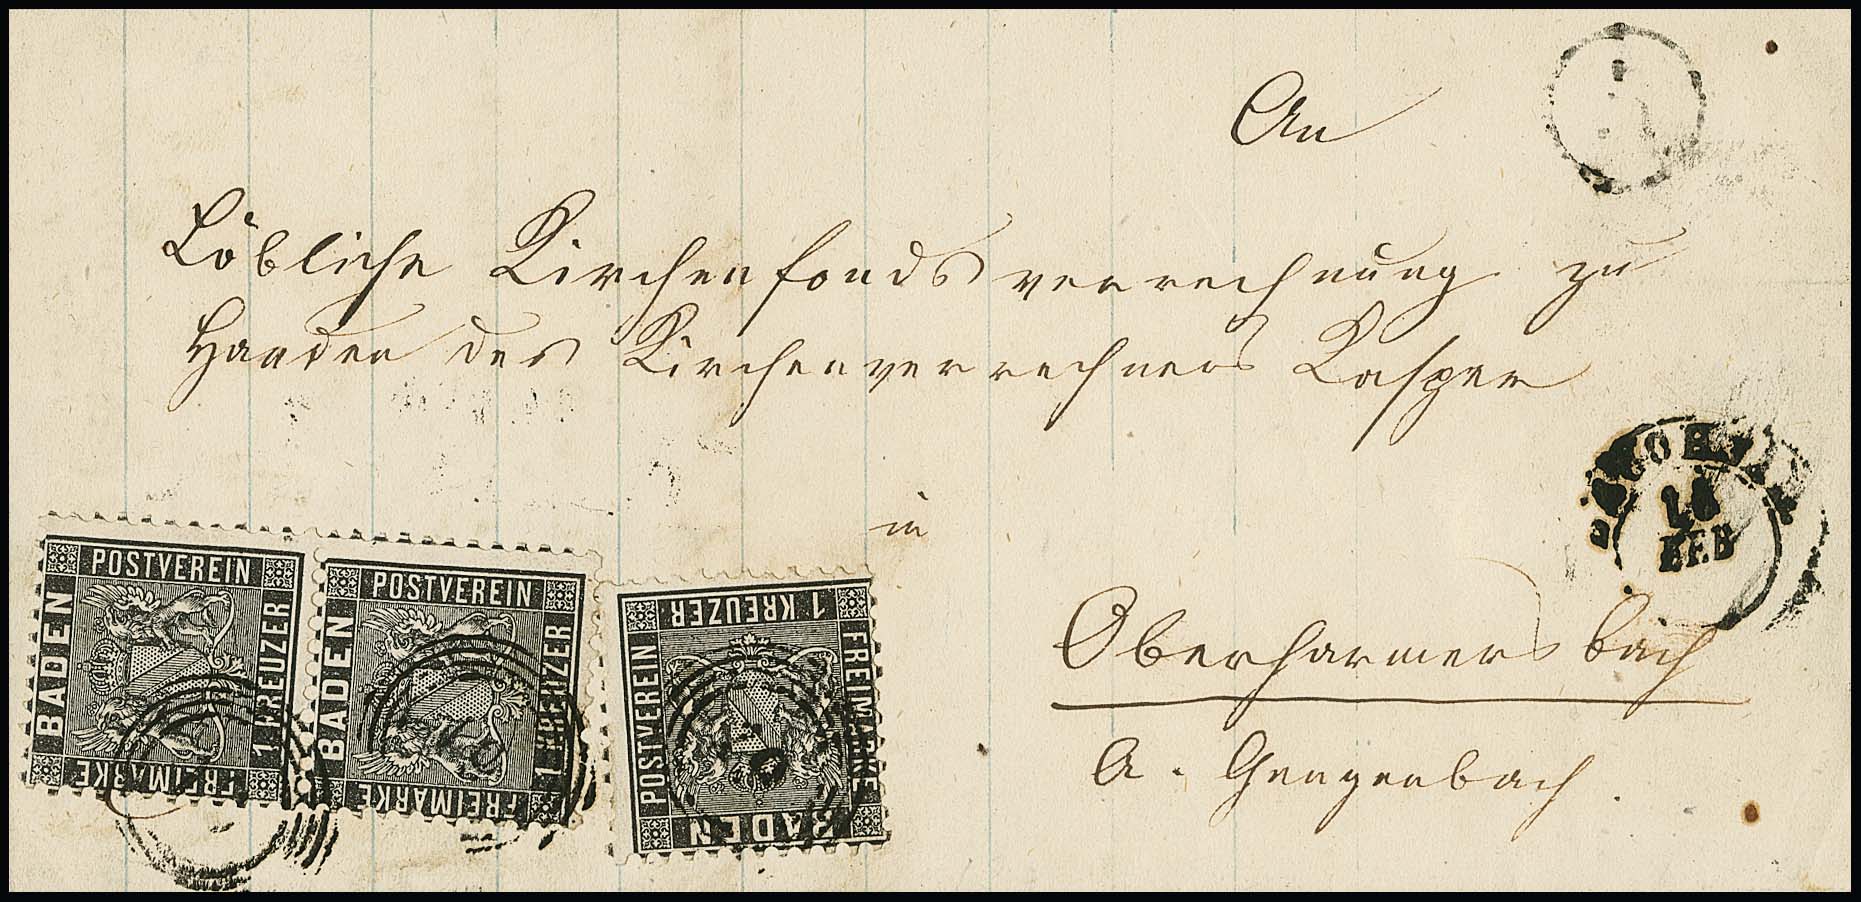 An
Löbliche Kirchenfonds verrechnung zu
Handen des Kirchenverrechners Kasper
in
Oberharmersbach
A. Gengenbach.
18
FEB
POSTVEREIN
BADEN
1 KREUZER
FREIMARKE
POSTVEREIN
BADEN
1 KREUZER
FREIMARKE
1 KREUZER
POSTVEREIN
FREIMARKE
BADEN